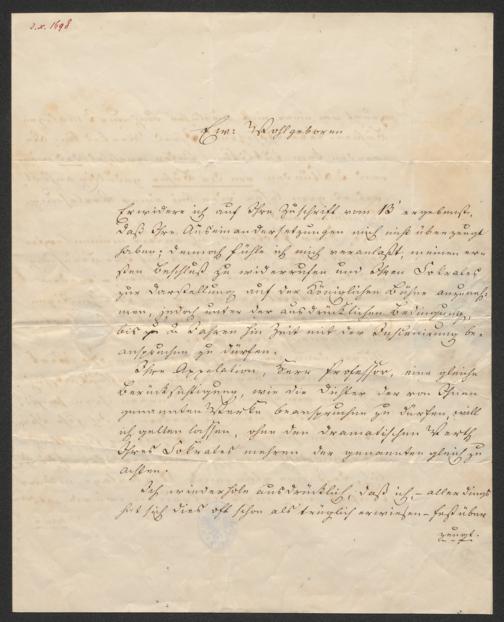 2.x. 1698
Ew: Wohlgeboren
Erwidere ich auf Ihre Zuschrift vom 13t ergebenst,
daß Ihre Auseinandersetzungen mich nicht überzeugt
haben; dennoch fühle ich mich veranlaßt, meinen er-
sten Beschluß zu widerrufen und Ihren Sokrates
zur Darstellung auf der Königlichen Bühne anzuneh-
men, jedoch unter der ausdrücklichen Bedingung,
bis zu 2 Jahren hin Zeit mit der Inscenirung be-
anspruchen zu dürfen.
Ihre Appellation, Herr Professor, eine gleiche
Berücksichtigung, wie die Dichter der von Ihnen
genannten Werke beanspruchen zu dürfen, will
ich gelten lassen, ohne den dramatischen Werth
Ihres Sokrates mehren der genannten gleich zu
achten.
Ich wiederhole ausdrücklich, daß ich, – allerdings
hat sich dies oft schon als trüglich erwiesen – fest über
zeugt.